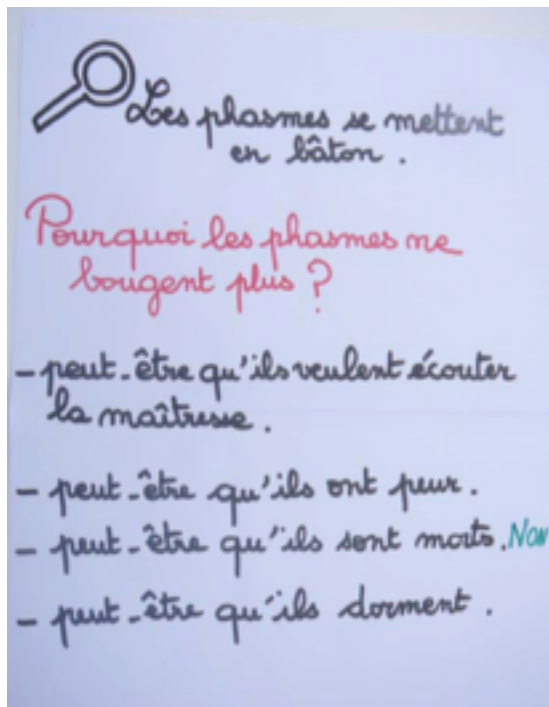 Les phasmes se mettent
en bâton.
Pourquoi les phasmes ne
bougent plus ?
- peut-être qu'ils veulent écouter
la maîtresse.
- peut-être qu'ils ont peur.
- peut-être qu'ils sont morts. Non
- peut-être qu'ils dorment.